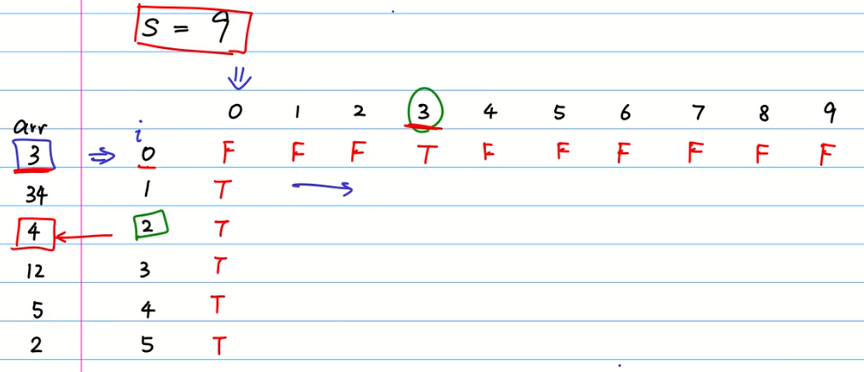 S = 9
0 1 2 3 4 5 6 7 8 9
arr i
3 0 F F F T F F F F F F
34 1 T
4 2 T
12 3 T
5 4 T
2 5 T